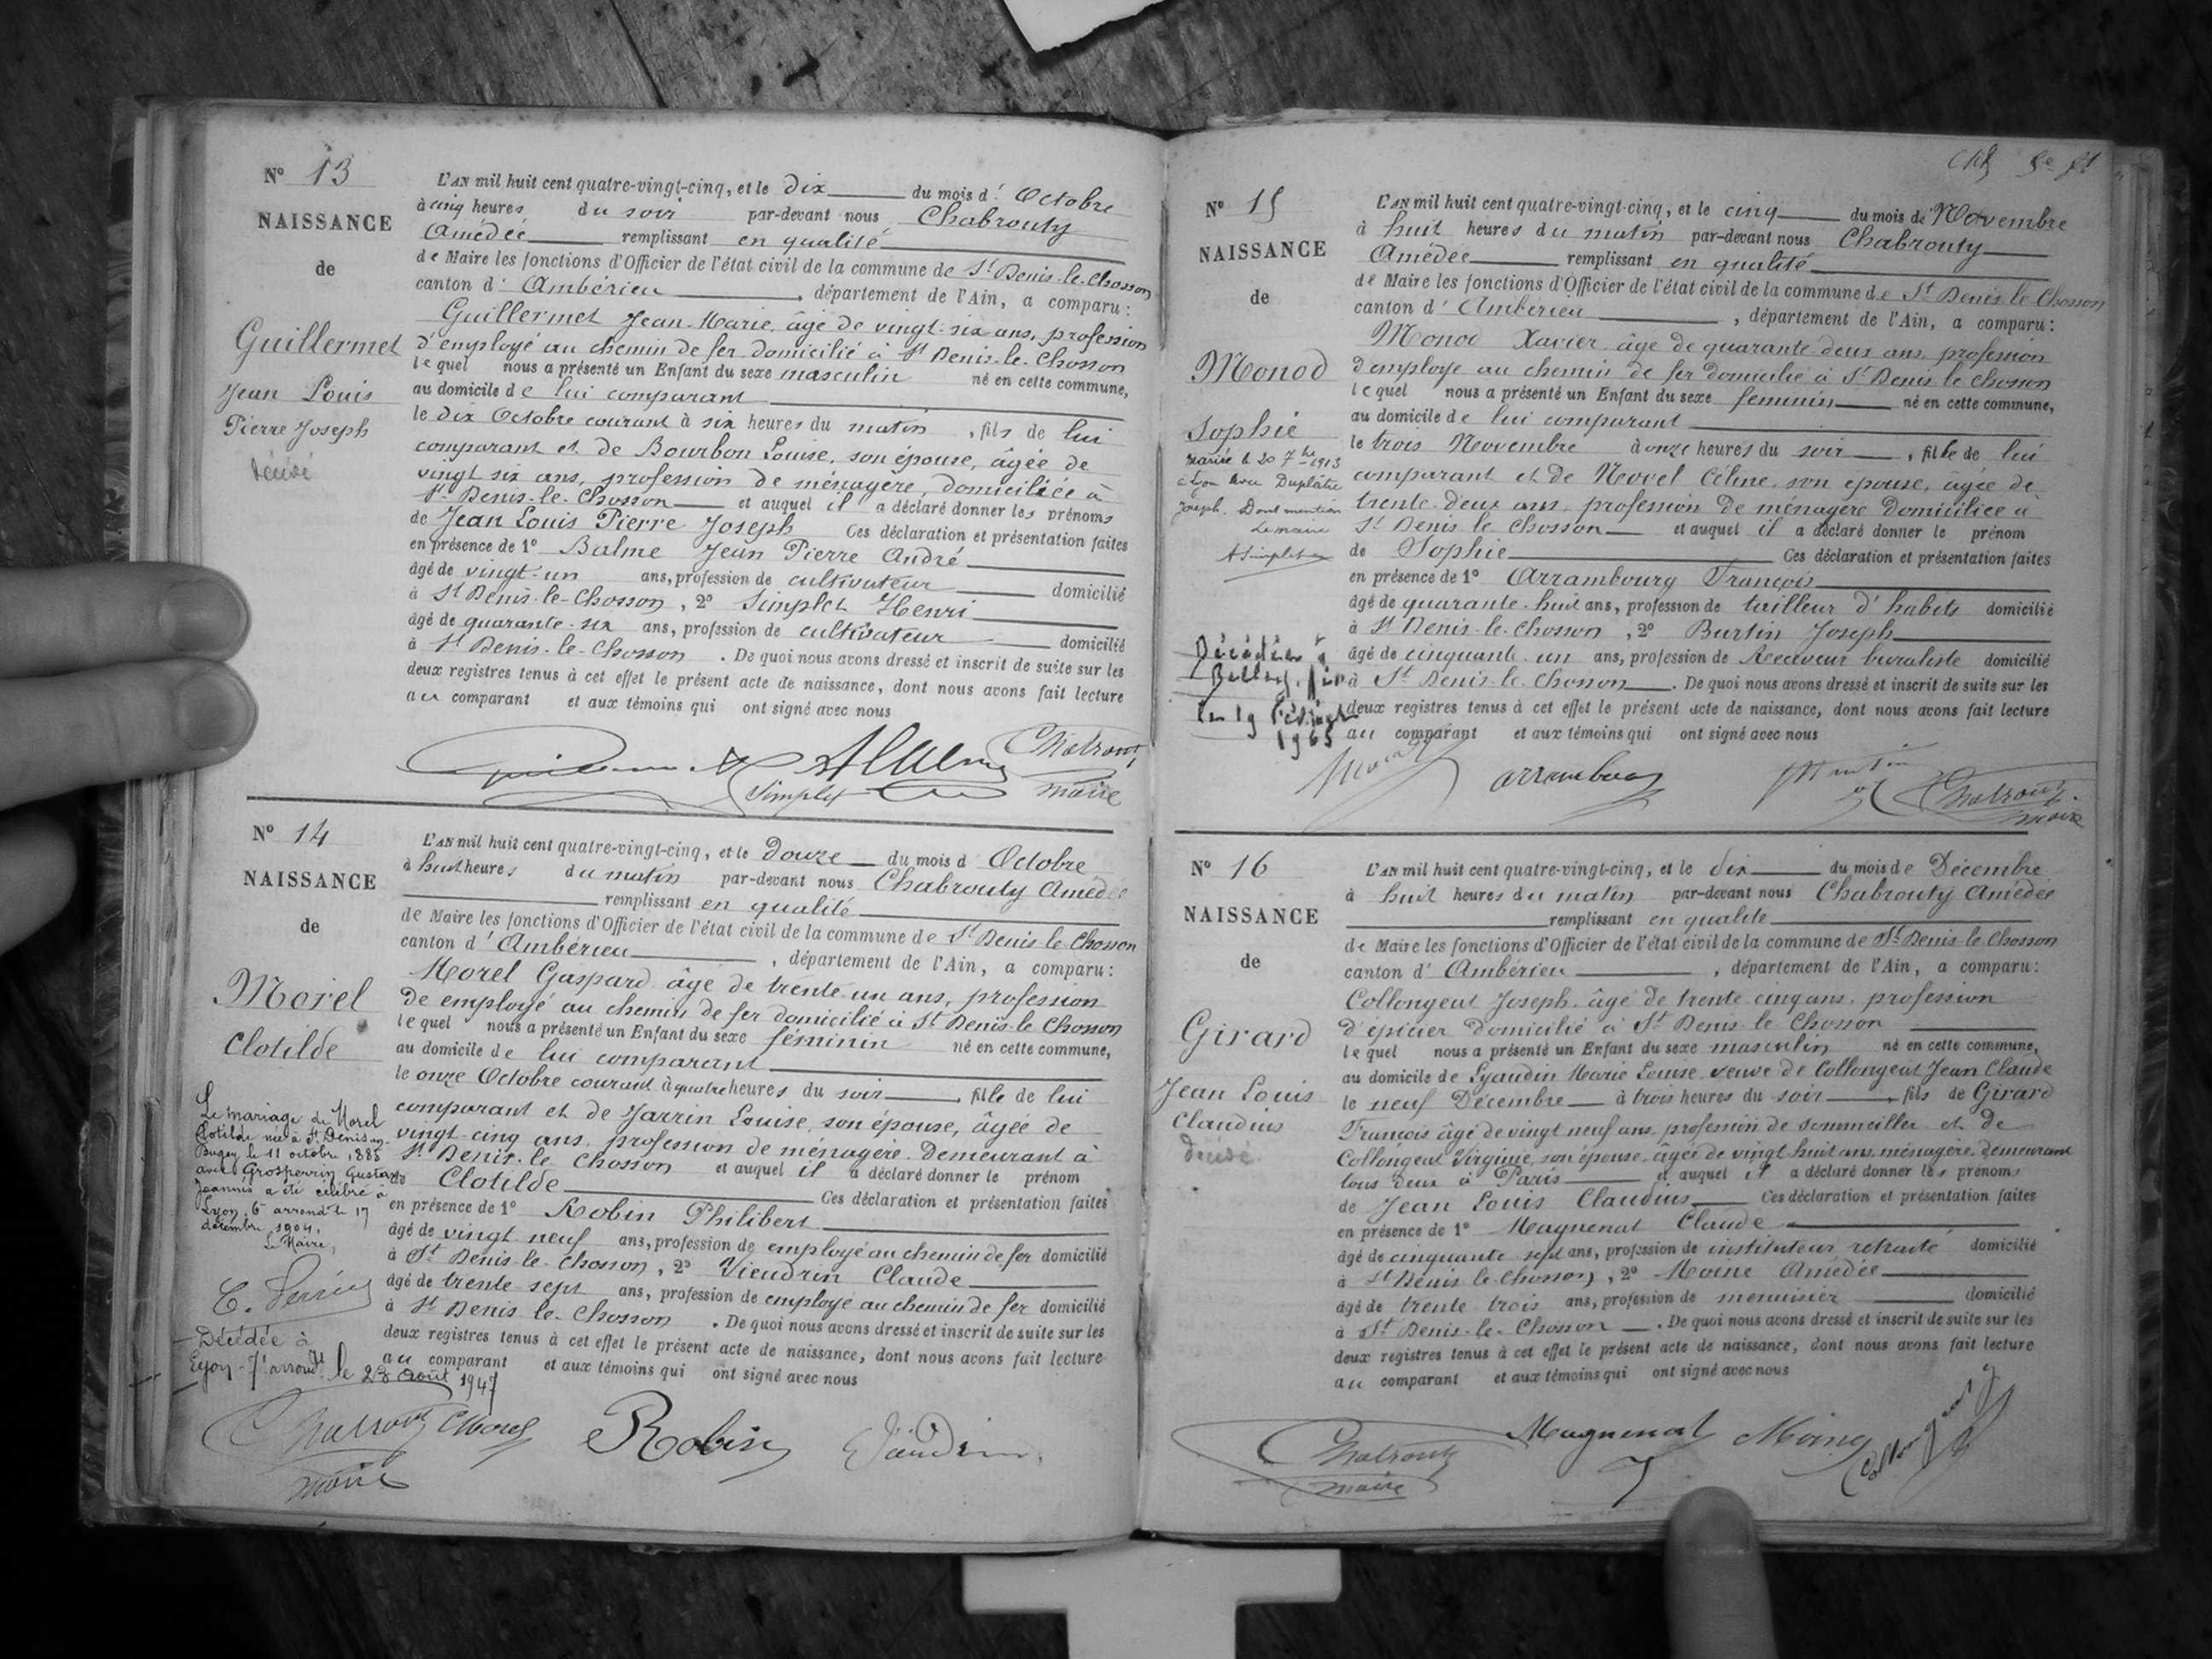 Nº 13
NAISSANCE
de
Guillermet
Jean Louis
Pierre Joseph
décédé
L'AN mil huit cent quatre-vingt-cinq, et le dix du mois d' Octobre
à cinq heures du soir par-devant nous Chabrouty
Amédée remplissant en qualité
de Maire les fonctions d'Officier de l'état civil de la commune de St Denis-le-Chosson
canton d' Ambérieu, département de l'Ain, a comparu:
Guillermet Jean-Marie, âgé de vingt-six ans, profession
d'employé au chemin de fer domicilié à St Denis-le-Chosson
lequel nous a présenté un Enfant du sexe masculin né en cette commune,
au domicile de lui comparant
le dix Octobre courant à six heures du matin, fils de lui
comparant et de Bourbon Louise, son épouse, âgée de
vingt six ans, profession de ménagère, domiciliée à
St Denis-le-Chosson et auquel il a déclaré donner les prénoms
de Jean Louis Pierre Joseph Ces déclaration et présentation faites
en présence de 1º Balme Jean Pierre André
âgé de vingt-un ans, profession de cultivateur domicilié
à St Denis-le-Chosson, 2º Simplet Henri
âgé de quarante-six ans, profession de cultivateur domicilié
à St Denis-le-Chosson. De quoi nous avons dressé et inscrit de suite sur les
deux registres tenus à cet effet le présent acte de naissance, dont nous avons fait lecture
au comparant et aux témoins qui ont signé avec nous
Simplet
maire
Nº 14
NAISSANCE
de
Morel
Clotilde
Le mariage de Morel
Clotilde née à St Denis en
Bugey le 11 octobre 1885
avec Grosperrin Gustave
Joannès a été célébré à
Lyon, 6e arrondt le 17
décembre 1904.
Le Maire,
Décédée à
Lyon-7e arrondt le 23 Août 1947
L'AN mil huit cent quatre-vingt-cinq, et le douze du mois d Octobre
à huit heures du matin par-devant nous Chabrouty Amédée
remplissant en qualité
de Maire les fonctions d'Officier de l'état civil de la commune de St Denis-le-Chosson
canton d' Ambérieu, département de l'Ain, a comparu:
Morel Gaspard âgé de trente-un ans, profession
de employé au chemin de fer domicilié à St Denis-le Chosson
lequel nous a présenté un Enfant du sexe féminin né en cette commune,
au domicile de lui comparant
le onze Octobre courant à quatre heures du soir, fille de lui
comparant et de Jarrin Louise, son épouse, âgée de
vingt-cinq ans, profession de ménagère. Demeurant à
St Denis-le Chosson et auquel il a déclaré donner le prénom
de Clotilde Ces déclaration et présentation faites
en présence de 1º Robin Philibert
âgé de vingt neuf ans, profession de employé au chemin de fer domicilié
à St Denis-le-Chosson, 2º Vieudrin Claude
âgé de trente sept ans, profession de employé au chemin de fer domicilié
à St Denis le-Chosson. De quoi nous avons dressé et inscrit de suite sur les
deux registres tenus à cet effet le présent acte de naissance, dont nous avons fait lecture
au comparant et aux témoins qui ont signé avec nous
Robin
maire
Nº 15
NAISSANCE
de
Monod
Sophie
Mariée le 20 7bre 1913
à Lyon avec Duplâtre
Joseph. Dont mention
Le maire
Décédée à
Belley, Ain
le 19 Février
1965
L'AN mil huit cent quatre-vingt-cinq, et le cinq du mois de Novembre
à huit heures du matin par-devant nous Chabrouty
Amédée remplissant en qualité
de Maire les fonctions d'Officier de l'état civil de la commune de St Denis-le Chosson
canton d' Ambérieu, département de l'Ain, a comparu:
Monod Xavier âgé de quarante-deux ans profession
d'employé au chemin de fer domicilié à St Denis le Chosson
lequel nous a présenté un Enfant du sexe féminin né en cette commune,
au domicile de lui comparant
le trois Novembre à onze heures du soir, fille de lui
comparant et de Novel Céline, son épouse, âgée de
trente-deux ans, profession de ménagère domiciliée à
St Denis le Chosson et auquel il a déclaré donner le prénom
de Sophie Ces déclaration et présentation faites
en présence de 1º Arrambourg François
âgé de quarante-huit ans, profession de tailleur d'habits domicilié
à St Denis-le-Chosson, 2º Burtin Joseph
âgé de cinquante-un ans, profession de Receveur buraliste domicilié
à St Denis-le-Chosson. De quoi nous avons dressé et inscrit de suite sur les
deux registres tenus à cet effet le présent acte de naissance, dont nous avons fait lecture
au comparant et aux témoins qui ont signé avec nous
maire
Nº 16
NAISSANCE
de
Girard
Jean Louis
Claudius
décédé
L'AN mil huit cent quatre-vingt-cinq, et le dix du mois de Décembre
à huit heures du matin par-devant nous Chabrouty Amédée
remplissant en qualité
de Maire les fonctions d'Officier de l'état civil de la commune de St Denis le Chosson
canton d' Ambérieu, département de l'Ain, a comparu:
Collongeat Joseph, âgé de trente cinq ans, profession
d'épicier domicilié à St Denis-le-Chosson
lequel nous a présenté un Enfant du sexe masculin né en cette commune,
au domicile de Lyaudin Marie Louise, veuve de Collongeat Jean Claude
le neuf Décembre à trois heures du soir, fils de Girard
François âgé de vingt neuf ans, profession de sommeiller et de
Collongeat Virginie, son épouse, âgée de vingt-huit ans, ménagère, demeurant
tous deux à Paris et auquel il a déclaré donner les prénoms
de Jean Louis Claudius Ces déclaration et présentation faites
en présence de 1º Magnenat Claude
âgé de cinquante sept ans, profession de instituteur retraité domicilié
à St Denis le Chosson, 2º Moine Amédée
âgé de trente trois ans, profession de menuisier domicilié
à St Denis-le-Chosson. De quoi nous avons dressé et inscrit de suite sur les
deux registres tenus à cet effet le présent acte de naissance, dont nous avons fait lecture
au comparant et aux témoins qui ont signé avec nous
Magnenat
maire